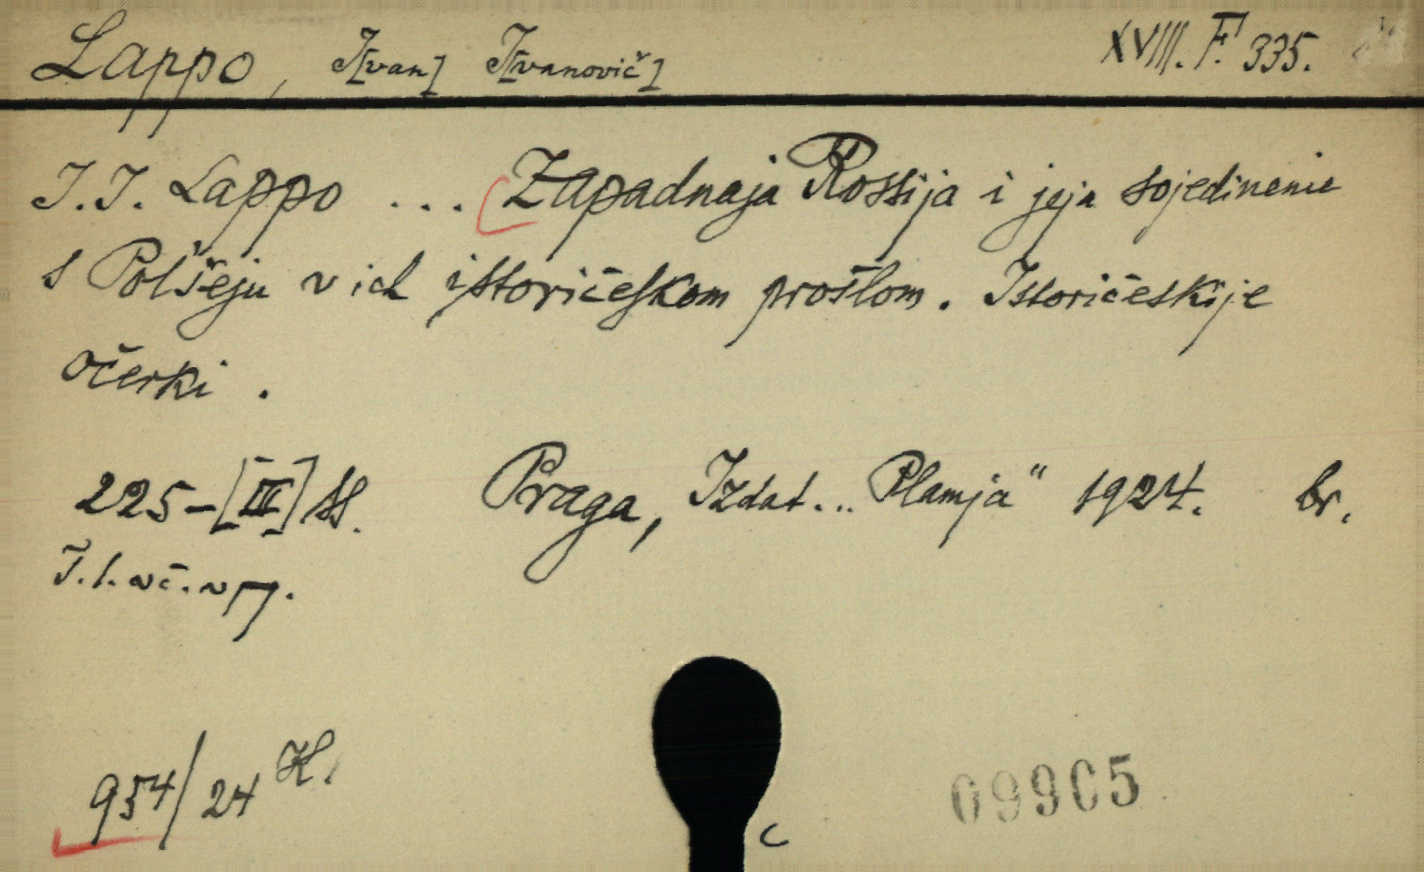 Lappo, I[van] I[vanovič] XVIII. F. 335.
I. I. Lappo ... Zapadnaja Rossija i jeja sojedinenie
s Pol'šeju v ich istoričeskom prošlom. Istoričeskije
očerki.
225-[III] ss. Praga, Izdat... Plamja" 1924. br.
954/24 H.
09905
c